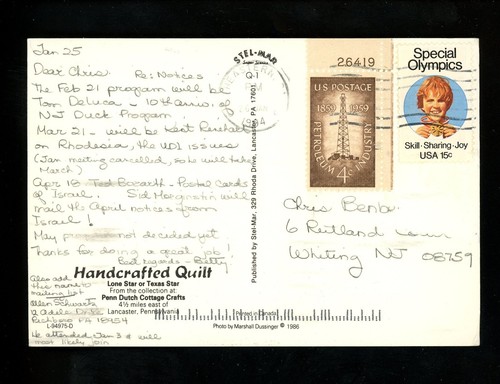 Jan 25
Dear Chris, Re: Notices
The Feb 21 program will be
Tom DeLuca - 10th anniv. of
NJ Duck Program
Mar 21 - will be Kent
on Rhodesia, the UDI issues
(Jan meeting cancelled, so he will take
March)
Apr 18 Ted Bozarth - Postal Cards
of Israel. Sid Morginstin will
mail the April notices from
Israel!
May not decided yet
Thanks for doing a great job!
Best regards - Betty
Also add
this name to
mailing list
Allen Schwartz
12 Adele
Richboro PA 18954
He attended Jan 3 & will
most likely join
Handcrafted Quilt
Lone Star or Texas Star
From the collection at
Penn Dutch Cottage Crafts
4½ miles east of
Lancaster, Pennsylvania
L-94975-D
STEL-MAR
Q-1
Published by Stel-Mar, 329 Rhoda Drive, Lancaster, PA 17601
Printed in Canada
Photo by Marshall Dussinger © 1986
26419
U.S. POSTAGE
1859 1959
PETROLEUM INDUSTRY
4¢
Special
Olympics
Skill·Sharing·Joy
USA 15c
Chris Benba
6 Rutland
Whiting NJ 08759